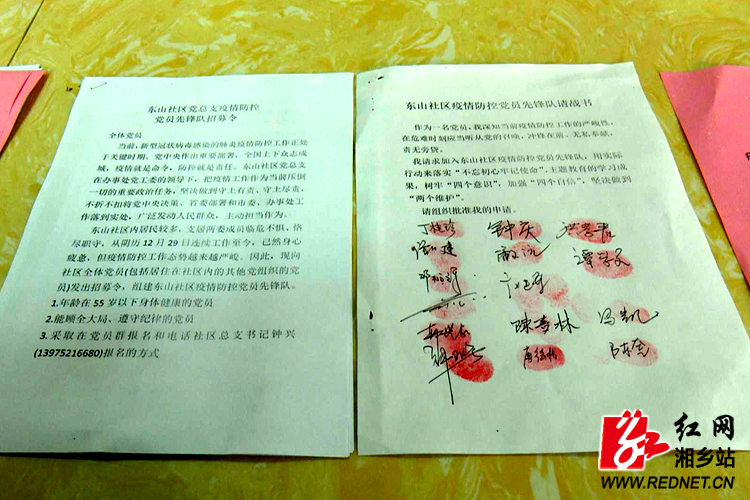 东山社区党总支疫情防控
党员先锋队招募令
全体党员
当前，新型冠状病毒感染的肺炎疫情防控工作正处
于关键时期。党中央作出重要部署，全国上下众志成
城，疫情就是命令，防控就是责任。东山社区党总支
在办事处党工委的领导下，把疫情工作作为当前压倒
一切的重要政治任务，坚决做到守土有责、守土尽责，
不折不扣将党中央决策、省委部署和市委、办事处工
作落到实处，广泛发动人民群众，主动担当作为。
东山社区内居民较多，支居两委成员临危不惧、恪
尽职守，从阴历12月29日连续工作至今，已然身心
疲惫，但疫情防控工作态势越来越严峻。因此，现向
社区全体党员(包括居住在社区内的其他党组织的党
员)发出招募令，组建东山社区疫情防控党员先锋队。
1.年龄在55岁以下身体健康的党员
2.能顾全大局、遵守纪律的党员
3.采取在党员群报名和电话社区总支书记钟兴
(13975216680)报名的方式
东山社区疫情防控党员先锋队请战书
作为一名党员，我深知当前疫情防控工作的严峻性，
在危难时刻应当听从党的召唤，冲锋在前、无私奉献，
责无旁贷。
我请求加入东山社区疫情防控党员先锋队，用实际
行动来落实“不忘初心牢记使命”主题教育的学习成
果，树牢“四个意识”，加强“四个自信”，坚决做到
“两个维护”。
请组织批准我的申请。
钟庆
陈等林
冯凯
红网
湘乡站
WWW.REDNET.CN